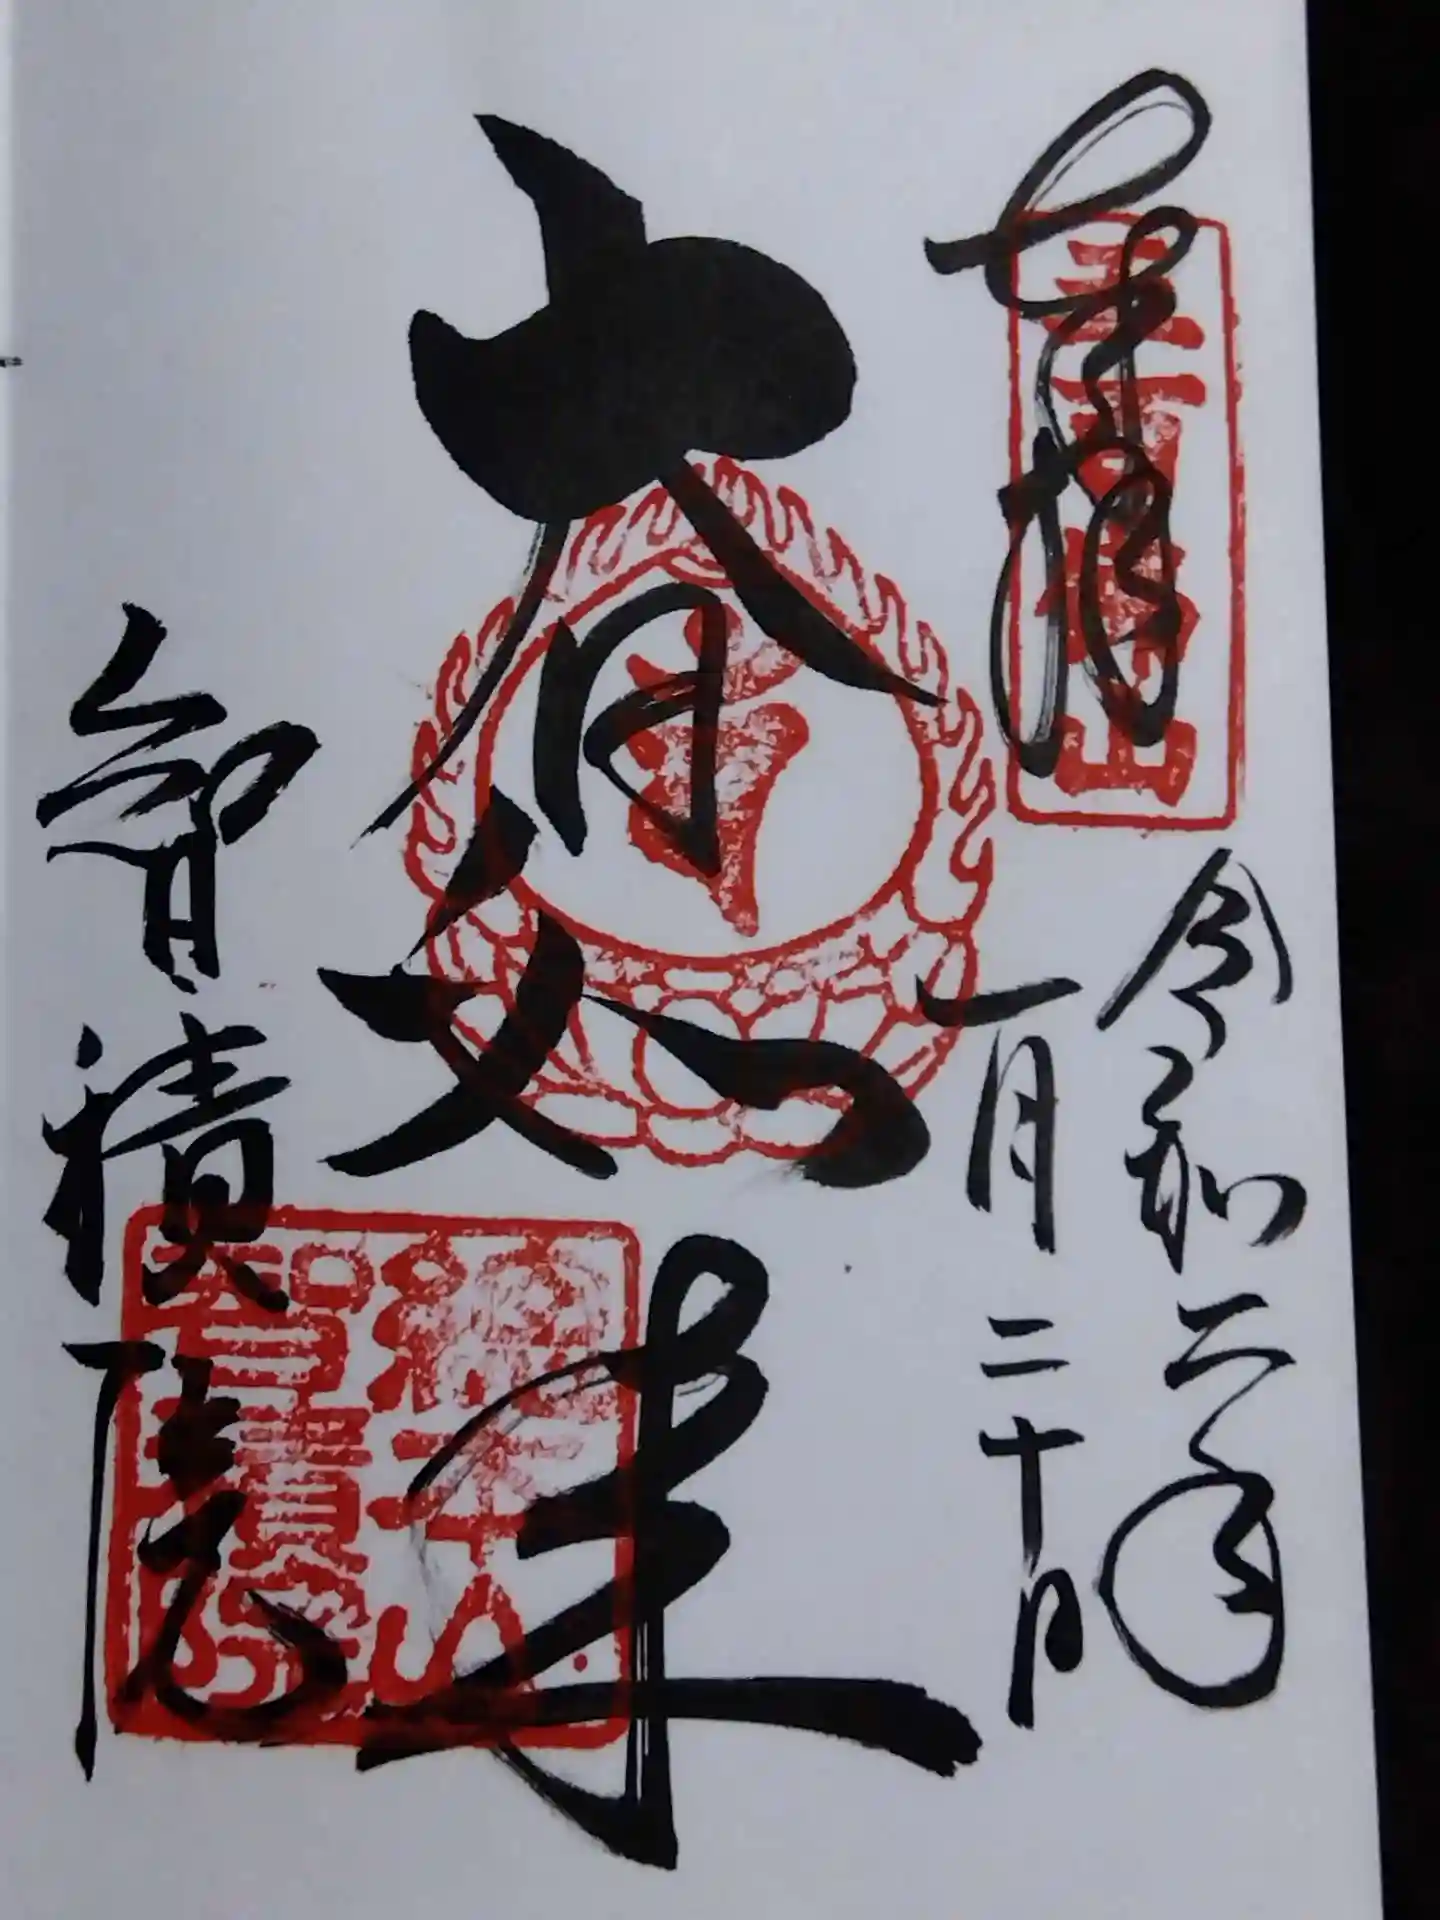 奉拝
五百佛山
令和二年
一月二十日
大日如来
智積院
総本山
智積院